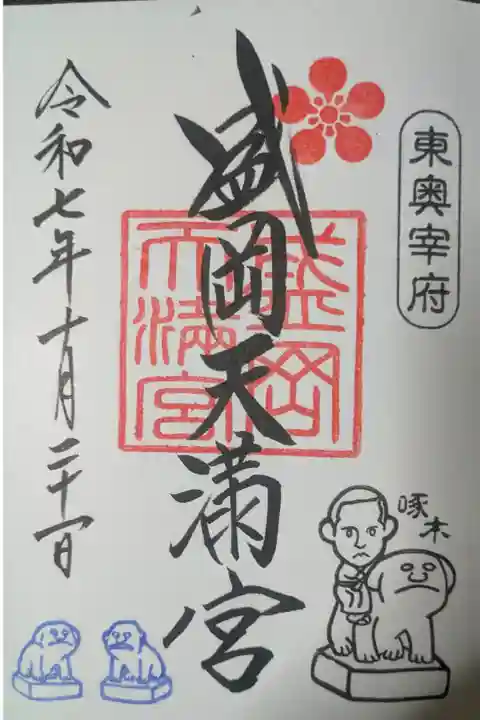 東奥宰府
盛岡天満宮
盛岡
天満宮
令和七年十月二十一日
啄木